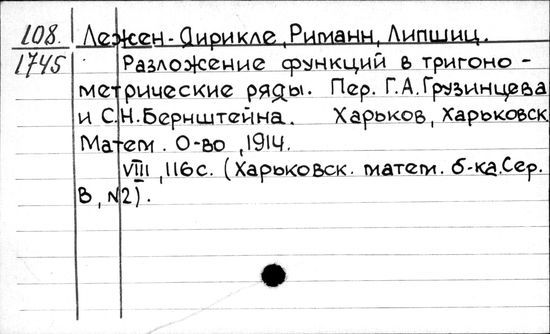 108. Лежен-Дирикле, Риманн, Липшиц.
1745 Разложение функций в тригоно-
метрические ряды. Пер. Г.А.Грузинцева
и С.Н.Бернштейна. Харьков, Харьковск
Матем. О-во, 1914.
VIII, 116с. (Харьковск. матем. б-ка.Сер.
В, №2).